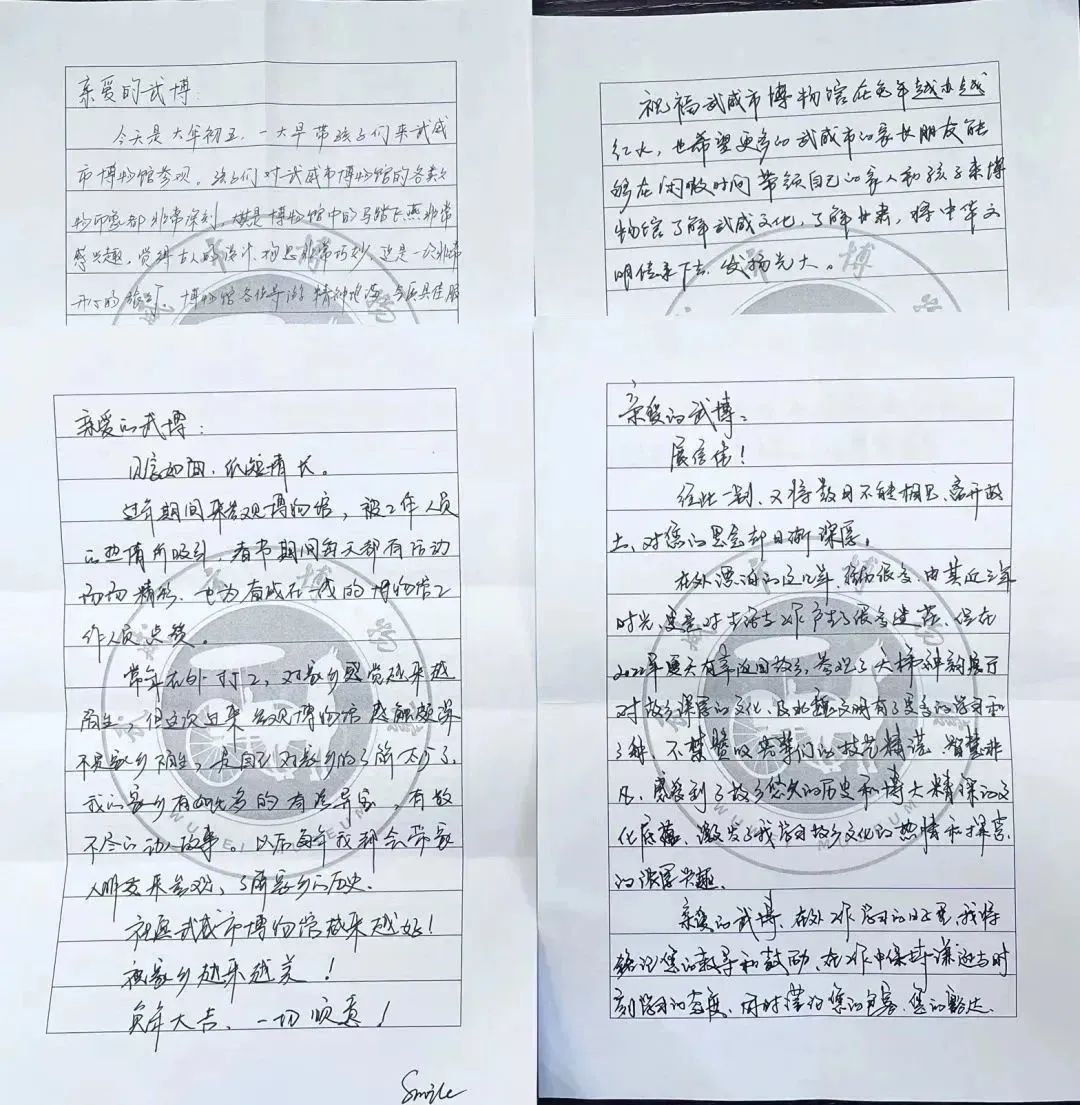 亲爱的武博:
今天是大年初五,一大早带孩子们来武威
市博物馆参观。孩子们对武威市博物馆的各类文
物印象都非常深刻,博物馆中的马踏飞燕非常
感兴趣,觉得古人的设计、构思非常巧妙,这是一次非常
开心的旅行。博物馆各位导游精神饱满,
祝福武威市博物馆在兔年越办越
红火,也希望更多的武威市的家长朋友能
够在闲暇时间带领自己的家人和孩子来博
物馆了解武威文化,了解甘肃,将中华文
明传承下去,发扬光大。
亲爱的武博:
见信如面,纸短情长。
过年期间来参观博物馆,被工作人员
的热情所吸引,春节期间每天都有活动
而而精彩,也为奋战在一线的博物馆工
作人员点赞。
常年在外打工,对家乡感觉越来越
陌生,但这次过来参观博物馆感触颇深
不是家乡陌生,是自己对家乡的了解太少了。
我的家乡有如此多的奇珍异宝,有数
不尽的动人故事。以后每年我都会带家
人朋友来参观,了解家乡的历史.
祝愿武威市博物馆越来越好!
祝家乡越来越美!
兔年大吉,一切顺意!
Smile
亲爱的武博:
展信佳!
经此一别,又将数日不能相见,离开故
土,对您的思念却日渐深厚。
在外漂泊的这几年,很多,尤其近三年
时光,更是对生活与工作产生了很多迷茫,但在
2022年夏天有幸返回故乡,参观了天梯神韵展厅
对故乡深厚的文化,及北魏文明有了更多的学习和
了解,不禁赞叹先辈们的技艺精湛,智慧非
凡,感受到了故乡悠久的历史和博大精深的文
化底蕴,激发了我学习故乡文化的热情和探究
的浓厚兴趣.
亲爱的武博,在外工作学习的日子里,我将
铭记您的教导和鼓励,在工作中保持谦逊与时
刻学习的态度,同时谨记您的包容、您的豁达.
MUSEUM